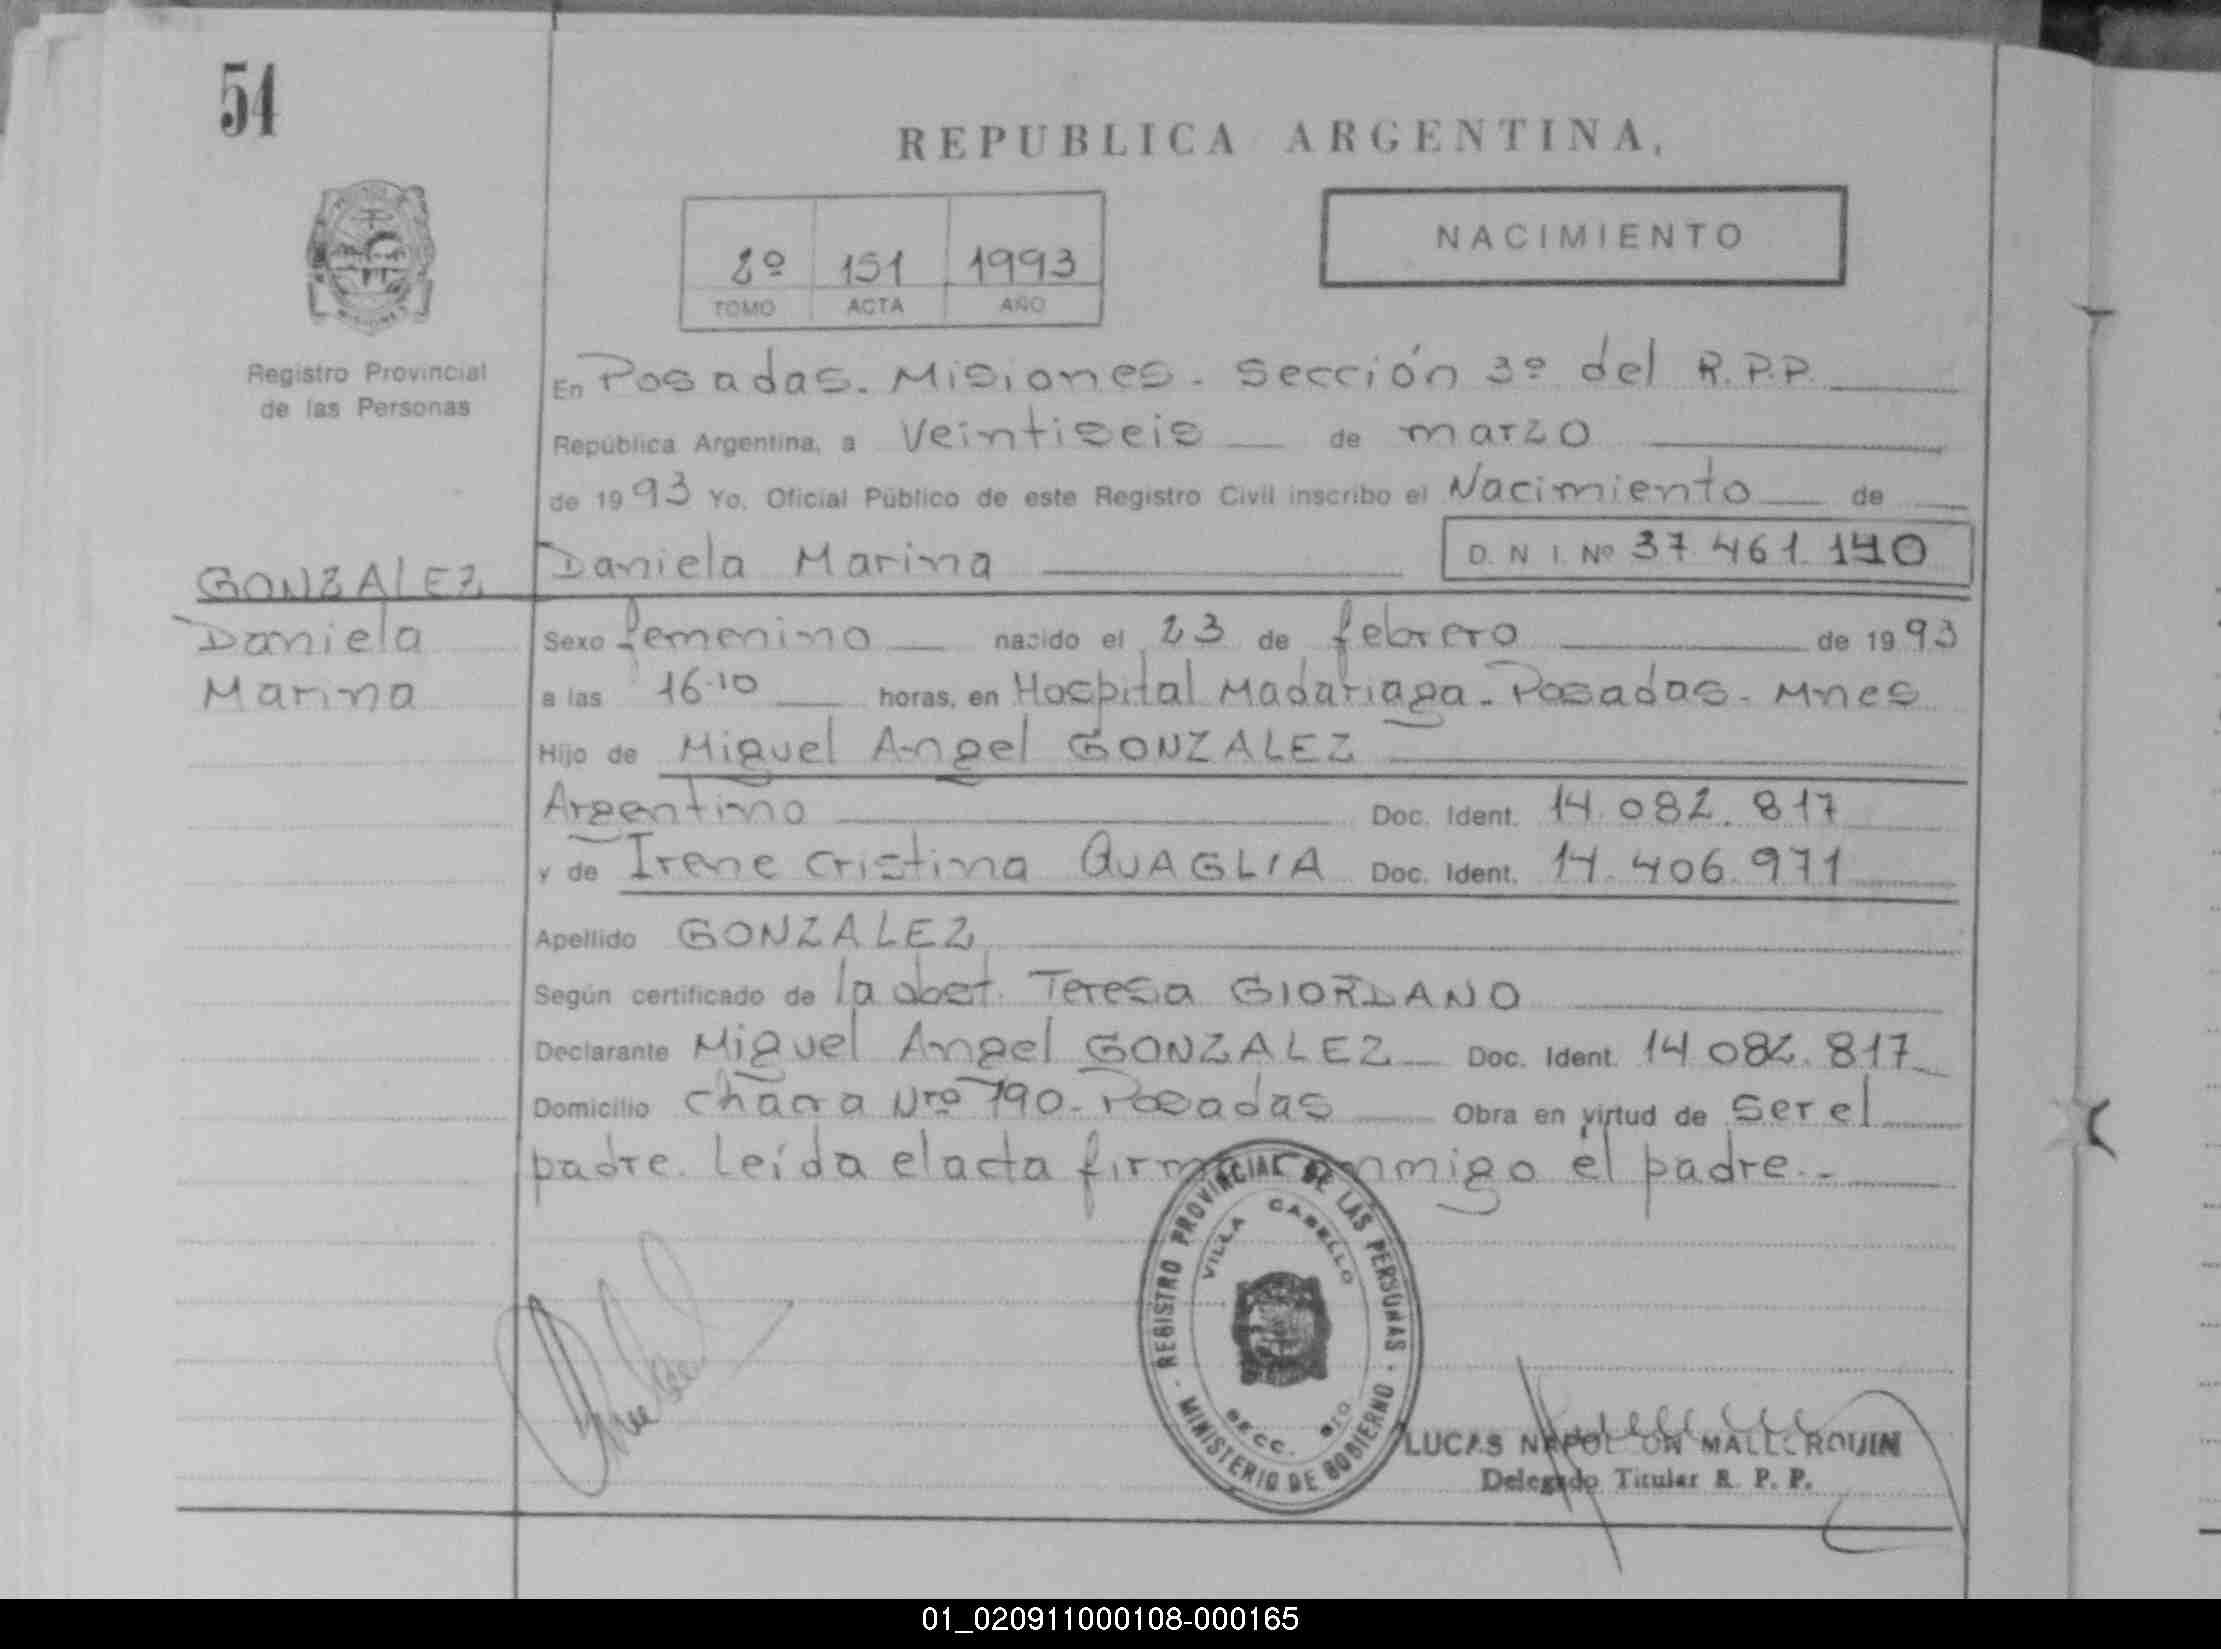 54
REPUBLICA ARGENTINA,
2º 151 1993
TOMO ACTA AÑO
NACIMIENTO
Registro Provincial
de las Personas
En Posadas. Misiones. Sección 3º del R.P.P.
República Argentina, a Veintiseis de marzo
de 1993 Yo, Oficial Público de este Registro Civil inscribo el Nacimiento de
GONZALEZ
Daniela
Marina
Daniela Marina D. N I. Nº 37.461.140
Sexo femenino nacido el 23 de febrero de 1993
a las 16.10 horas, en Hospital Madariaga. Posadas. Mnes
Hijo de Miguel Angel GONZALEZ
Argentino Doc. Ident. 14.082.817
y de Irene Cristina QUAGLIA Doc. Ident. 14.406.971
Apellido GONZALEZ
Según certificado de la obst. Teresa GIORDANO
Declarante Miguel Angel GONZALEZ Doc. Ident. 14.082.817
Domicilio Chacra Nro 190. Posadas Obra en virtud de Ser el
padre. Leída el acta firma conmigo el padre.-
REGISTRO PROVINCIAL DE LAS PERSONAS
MINISTERIO DE GOBIERNO
VILLA CABELLO
SECC. 3ra
LUCAS NAPOLEON
Delegado Titular R. P. P.
01_020911000108-000165